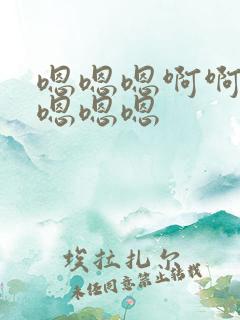 嗯嗯嗯啊啊
嗯嗯嗯
埃拉扎尔
未经同意禁止转载